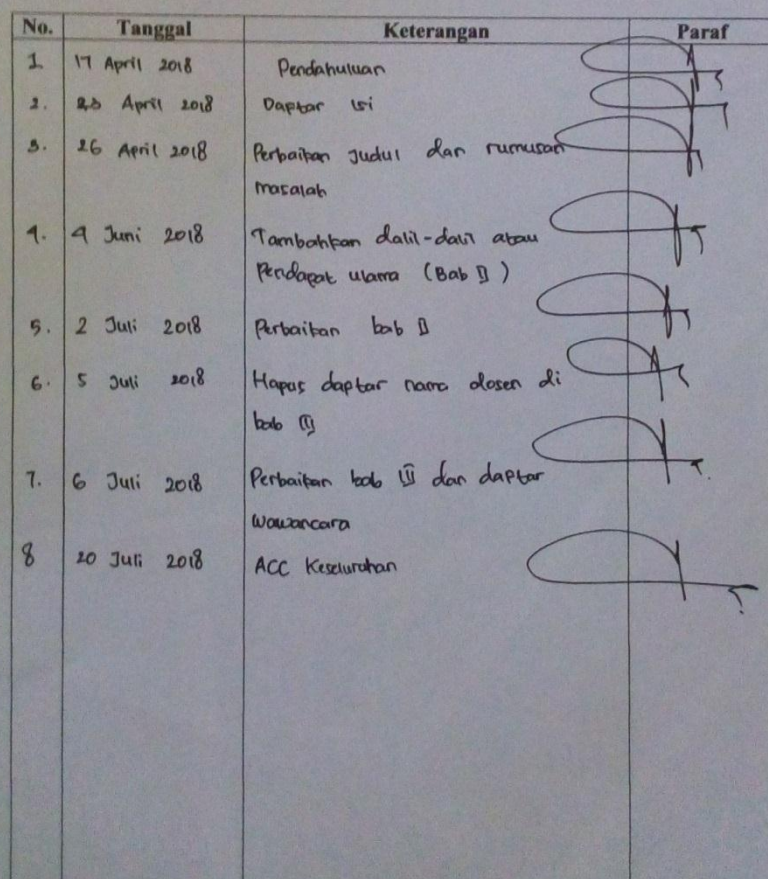 No. Tanggal Keterangan Paraf
1 17 April 2018 Pendahuluan
2. 23 April 2018 Daptar isi
3. 26 April 2018 Perbaikan Judul dan rumusan
masalah
4. 4 Juni 2018 Tambahkan dalil-dalil atau
Pendapat ulama (Bab II)
5. 2 Juli 2018 Perbaikan bab II
6. 5 Juli 2018 Hapus daptar nama dosen di
bab
7. 6 Juli 2018 Perbaikan bab III dan daptar
wawancara
8 20 Juli 2018 ACC Keselurahan